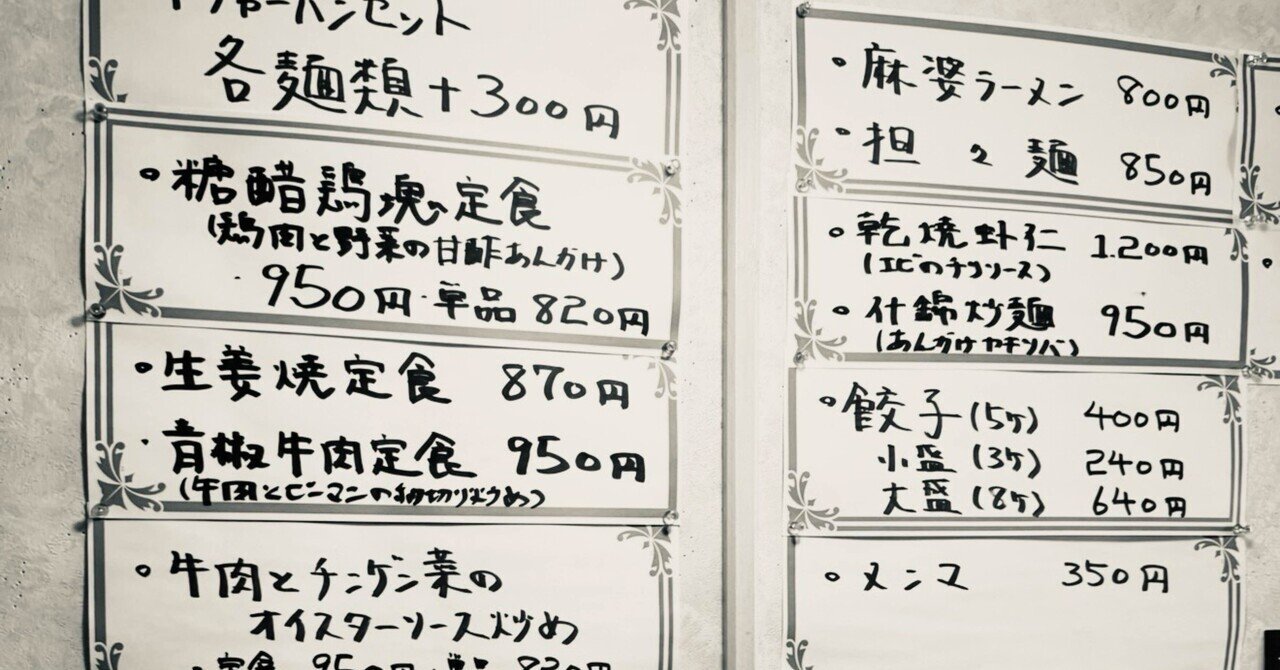 各麺類+300円
・糖醋鶏塊定食
(鶏肉と野菜の甘酢あんかけ)
・950円・単品820円
・生姜焼定食 870円
・青椒牛肉定食 950円
(牛肉とピーマンの細切り炒め)
・牛肉とチンゲン菜の
オイスターソース炒め
・定食 950円・単品 820円
・麻婆ラーメン 800円
・担々麺 850円
・乾焼虾仁 1.200円
(エビのチリソース)
・什錦炒麺 950円
(あんかけヤキソバ)
・餃子(5ケ) 400円
小盛(3ケ) 240円
大盛(8ケ) 640円
・メンマ 350円